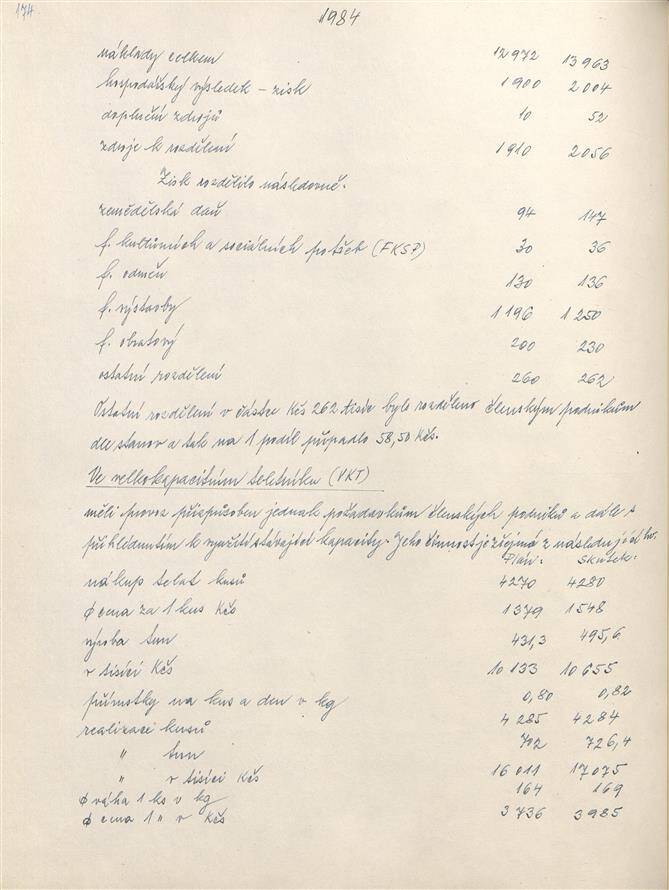 174
1984
náklady celkem 12 972 13 963
hospodářský výsledek – zisk 1 900 2 004
doplnění zdrojů 10 52
zdroje k rozdělení 1 910 2 056
Zisk rozdělilo následovně.
zemědělská daň 94 147
f. kulturních a sociálních potřeb (FKSP) 30 36
f. odměn 130 136
f. výstavby 1 196 1 250
f. obratový 200 230
ostatní rozdělení 260 262
Ostatní rozdělení v částce Kčs 262 tisíc bylo rozděleno členským podnikům
dle stanov a tak na 1 podíl připadlo 58,50 Kčs.
Ve velkokapacitním teletníku (VKT)
měli provoz přizpůsoben jednak požadavkům členských podniků a dále s
přihlédnutím k využití stávající kapacity. Jeho činnost je zřejmá z následujících.
Plán. Skuteč.
nákup telat kusů 4270 4280
φ cena za 1 kus Kčs 1379 1548
výroba tun 431,3 495,6
v tisící Kčs 10 133 10 655
přírůstky na kus a den v kg 0,80 0,82
realizaci kusů 4 285 4 284
" tun 702 726,4
" v tisící Kčs 16 011 17 075
φ váha 1 ks v kg 164 169
φ cena 1 " v Kčs 3 736 3 985